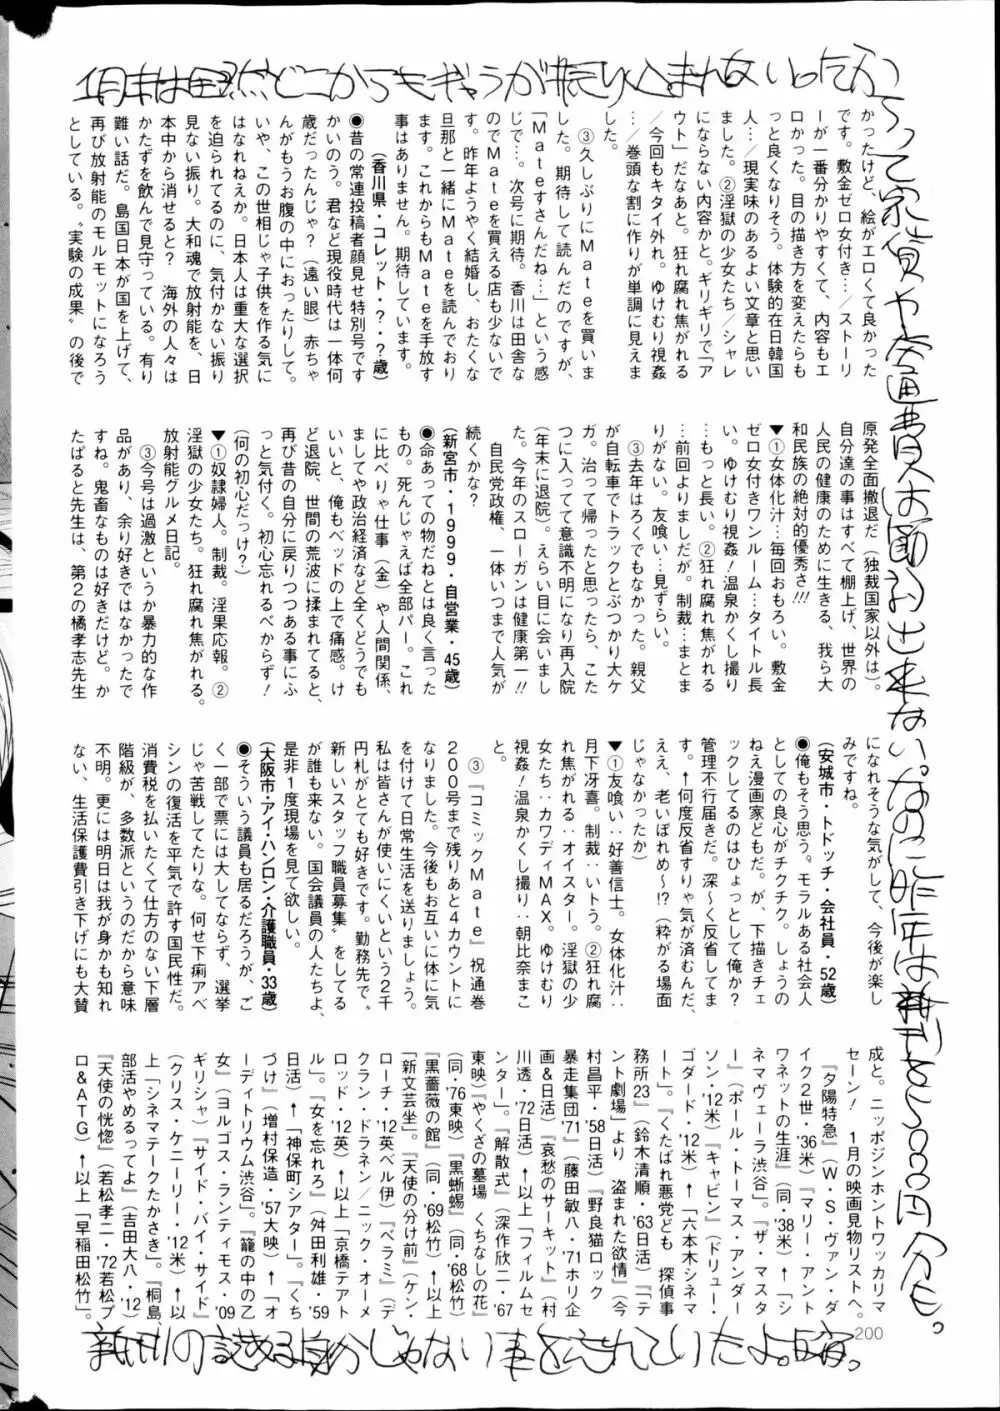 かったけど、絵がエロくて良かった
です。敷金ゼロ女付き…／ストーリ
ーが一番分かりやすくて、内容もエ
ロかった。目の描き方を変えたらも
っと良くなりそう。体験的在日韓国
人…／現実味のあるよい文章と思い
ました。②淫獄の少女たち／シャレ
にならない内容かと。ギリギリで「ア
ウト」だなあと。狂れ腐れ焦がれる
／今回もキタイ外れ。ゆけむり視姦
…／巻頭な割に作りが単調に見えま
した。
③久しぶりにＭａｔｅを買いま
した。期待して読んだのですが、
「Ｍａｔｅすさんだね…」という感
じで…。次号に期待。香川は田舎な
のでＭａｔｅを買える店も少ないで
す。昨年ようやく結婚し、おたくな
旦那と一緒にＭａｔｅを読んでおり
ます。これからもＭａｔｅを手放す
事はありません。期待しています。
（香川県・コレット・？・？歳）
●昔の常連投稿者顔見せ特別号です
かいのう。君など現役時代は一体何
歳だったんじゃ？（遠い眼）赤ちゃ
んがもうお腹の中におったりして。
いや、この世相じゃ子供を作る気に
はなれねえか。日本人は重大な選択
を迫られてるのに、気付かない振り
見ない振り。大和魂で放射能を、日
本中から消せると？　海外の人々は
かたずを飲んで見守っている。有り
難い話だ。島国日本が国を上げて、
再び放射能のモルモットになろう
としている。〝実験の成果〟の後で
原発全面撤退だ（独裁国家以外は）。
自分達の事はすべて棚上げ、世界の
人民の健康のために生きる、我ら大
和民族の絶対的優秀さ!!!
▼①女体化汁…毎回おもろい。敷金
ゼロ女付きワンルーム…タイトル長
い。ゆけむり視姦！温泉かくし撮り
…もっと長い。②狂れ腐れ焦がれる
…前回よりましだが。制裁…まとま
りがない。友喰い…見ずらい。
③去年はろくでもなかった。親父
が自転車でトラックとぶつかり大ケ
ガ。治って帰ったと思ったら、こた
つに入ってて意識不明になり再入院
（年末に退院）。えらい目に会いまし
た。今年のスローガンは健康第一!!
自民党政権、一体いつまで人気が
続くかな？
（新宮市・１９９９・自営業・45歳）
●命あっての物だねとは良く言った
もの。死んじゃえば全部パー。これ
に比べりゃ仕事（金）や人間関係、
ましてや政治経済など全くどうでも
いいと、俺もベッドの上で痛感。け
ど退院、世間の荒波に揉まれてると、
再び昔の自分に戻りつつある事にふ
っと気付く。初心忘れるべからず！
（何の初心だっけ？）
▼①奴隷婦人。制裁。淫果応報。②
淫獄の少女たち。狂れ腐れ焦がれる。
放射能グルメ日記。
③今号は過激というか暴力的な作
品があり、余り好きではなかったで
すね。鬼畜なものは好きだけど。か
たばると先生は、第２の橘孝志先生
になれそうな気がして、今後が楽し
みですね。
（安城市・トドッチ・会社員・52歳）
●俺もそう思う。モラルある社会人
としての良心がチクチク。しょうの
ねえ漫画家どもだ。が、下描きチェ
ックしてるのはひょっとして俺か？
管理不行届きだ。深～く反省してま
す。↑何度反省すりゃ気が済むんだ、
ええ、老いぼれめ～!?（粋がる場面
じゃなかったか）
▼①友喰い‥好善信士。女体化汁‥
月下冴喜。制裁‥いトう。②狂れ腐
れ焦がれる‥オイスター。淫獄の少
女たち‥カワディＭＡＸ。ゆけむり
視姦！温泉かくし撮り‥朝比奈まこ
と。
③『コミックＭａｔｅ』祝通巻
２００号まで残りあと４カウントに
なりました。今後もお互いに体に気
を付けて日常生活を送りましょう。
私は皆さんが使いにくいという２千
円札がとても好きです。勤務先で〝
新しいスタッフ職員募集〟をしてる
が誰も来ない。国会議員の人たちよ、
是非１度現場を見て欲しい。
（大阪市・アイ・ハンロン・介護職員・33歳）
●そういう議員も居るだろうが、ご
く一部で票には大してならず、選挙
じゃ苦戦してたりな。何せ下痢アベ
シンの復活を平気で許す国民性だ。
消費税を払いたくて仕方のない下層
階級が、多数派というのだから意味
不明。更には明日は我が身かも知れ
ない、生活保護費引き下げにも大賛
成と。ニッポジンホントワッカリマ
セーン！　１月の映画見物リストへ。
『夕陽特急』（Ｗ・Ｓ・ヴァン・ダ
イク２世・’36米）『マリー・アント
ワネットの生涯』（同・’38米）↑「シ
ネマヴェーラ渋谷」。『ザ・マスタ
ー』（ポール・トーマス・アンダー
ソン・’12米）『キャビン』（ドリュー・
ゴダード・’12米）↑「六本木シネマ
ート」。『くたばれ悪党ども　探偵事
務所23』（鈴木清順・’63日活）『テ
ント劇場』より　盗まれた欲情』（今
村昌平・’58日活）『野良猫ロック
暴走集団’71』（藤田敏八・’71ホリ企
画＆日活）『哀愁のサーキット』（村
川透・’72日活）↑以上「フィルムセ
ンター」。『解散式』（深作欣二・’67
東映）『やくざの墓場　くちなしの花』
（同・’76東映）『黒蜥蜴』（同・’68松竹）
『黒薔薇の館』（同・’69松竹）↑以上
「新文芸坐」。『天使の分け前』（ケン・
ローチ・’12英ベル伊）『ベラミ』（デ
クラン・ドネラン／ニック・オーメ
ロッド・’12英）↑以上「京橋テアト
ル」。『女を忘れろ』（舛田利雄・’59
日活）↑「神保町シアター」。『くち
づけ』（増村保造・’57大映）↑「オ
ーディトリウム渋谷」。『籠の中の乙
女』（ヨルゴス・ランティモス・’09
ギリシャ）『サイド・バイ・サイド』
（クリス・ケニーリー・’12米）↑以
上「シネマテークたかさき」。『桐島、
部活やめるってよ』（吉田大八・’12）
『天使の恍惚』（若松孝二・’72若松プ
ロ＆ＡＴＧ）↑以上「早稲田松竹」。
200
どこからもギャラが振り込まれないったか
らって家賃や交通費は節約出来ない。なのに昨年は新刊を5000円分も。
新刊の読める身分じゃない事を忘れていたよ。